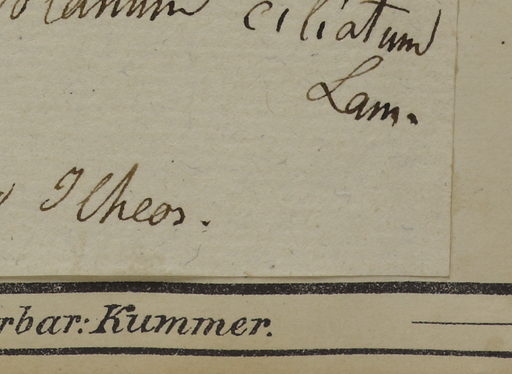 olanum ciliatum
Lam.
Ilheos.
rbar: Kummer.